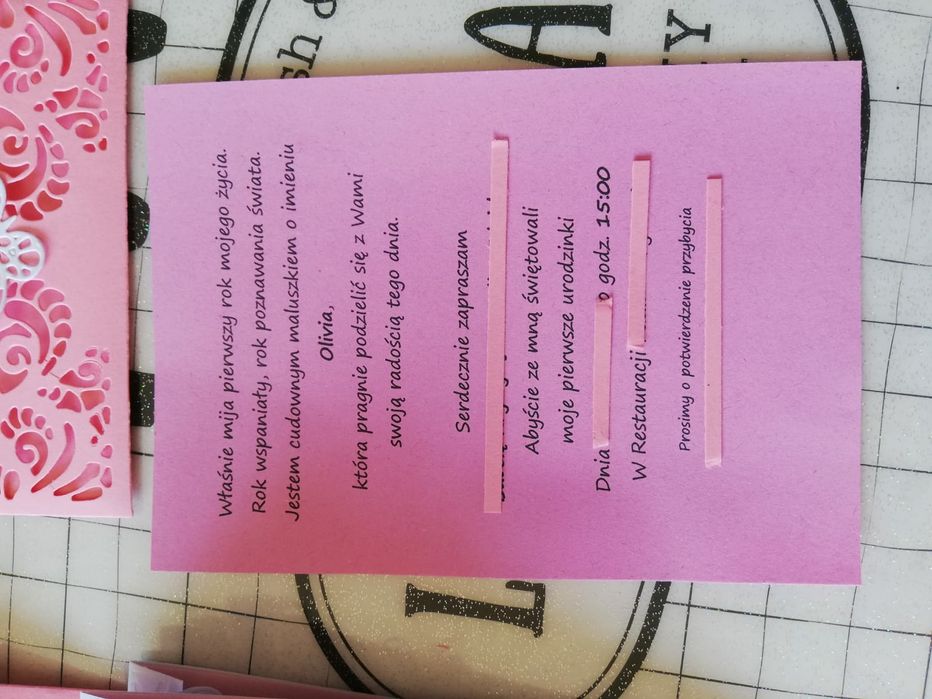 Właśnie mija pierwszy rok mojego życia.
Rok wspaniały, rok poznawania świata.
Jestem cudownym maluszkiem o imieniu
Olivia,
która pragnie podzielić się z Wami
swoją radością tego dnia.
Serdecznie zapraszam
Abyście ze mną świętowali
moje pierwsze urodzinki
Dnia o godz. 15:00
W Restauracji
Prosimy o potwierdzenie przybycia